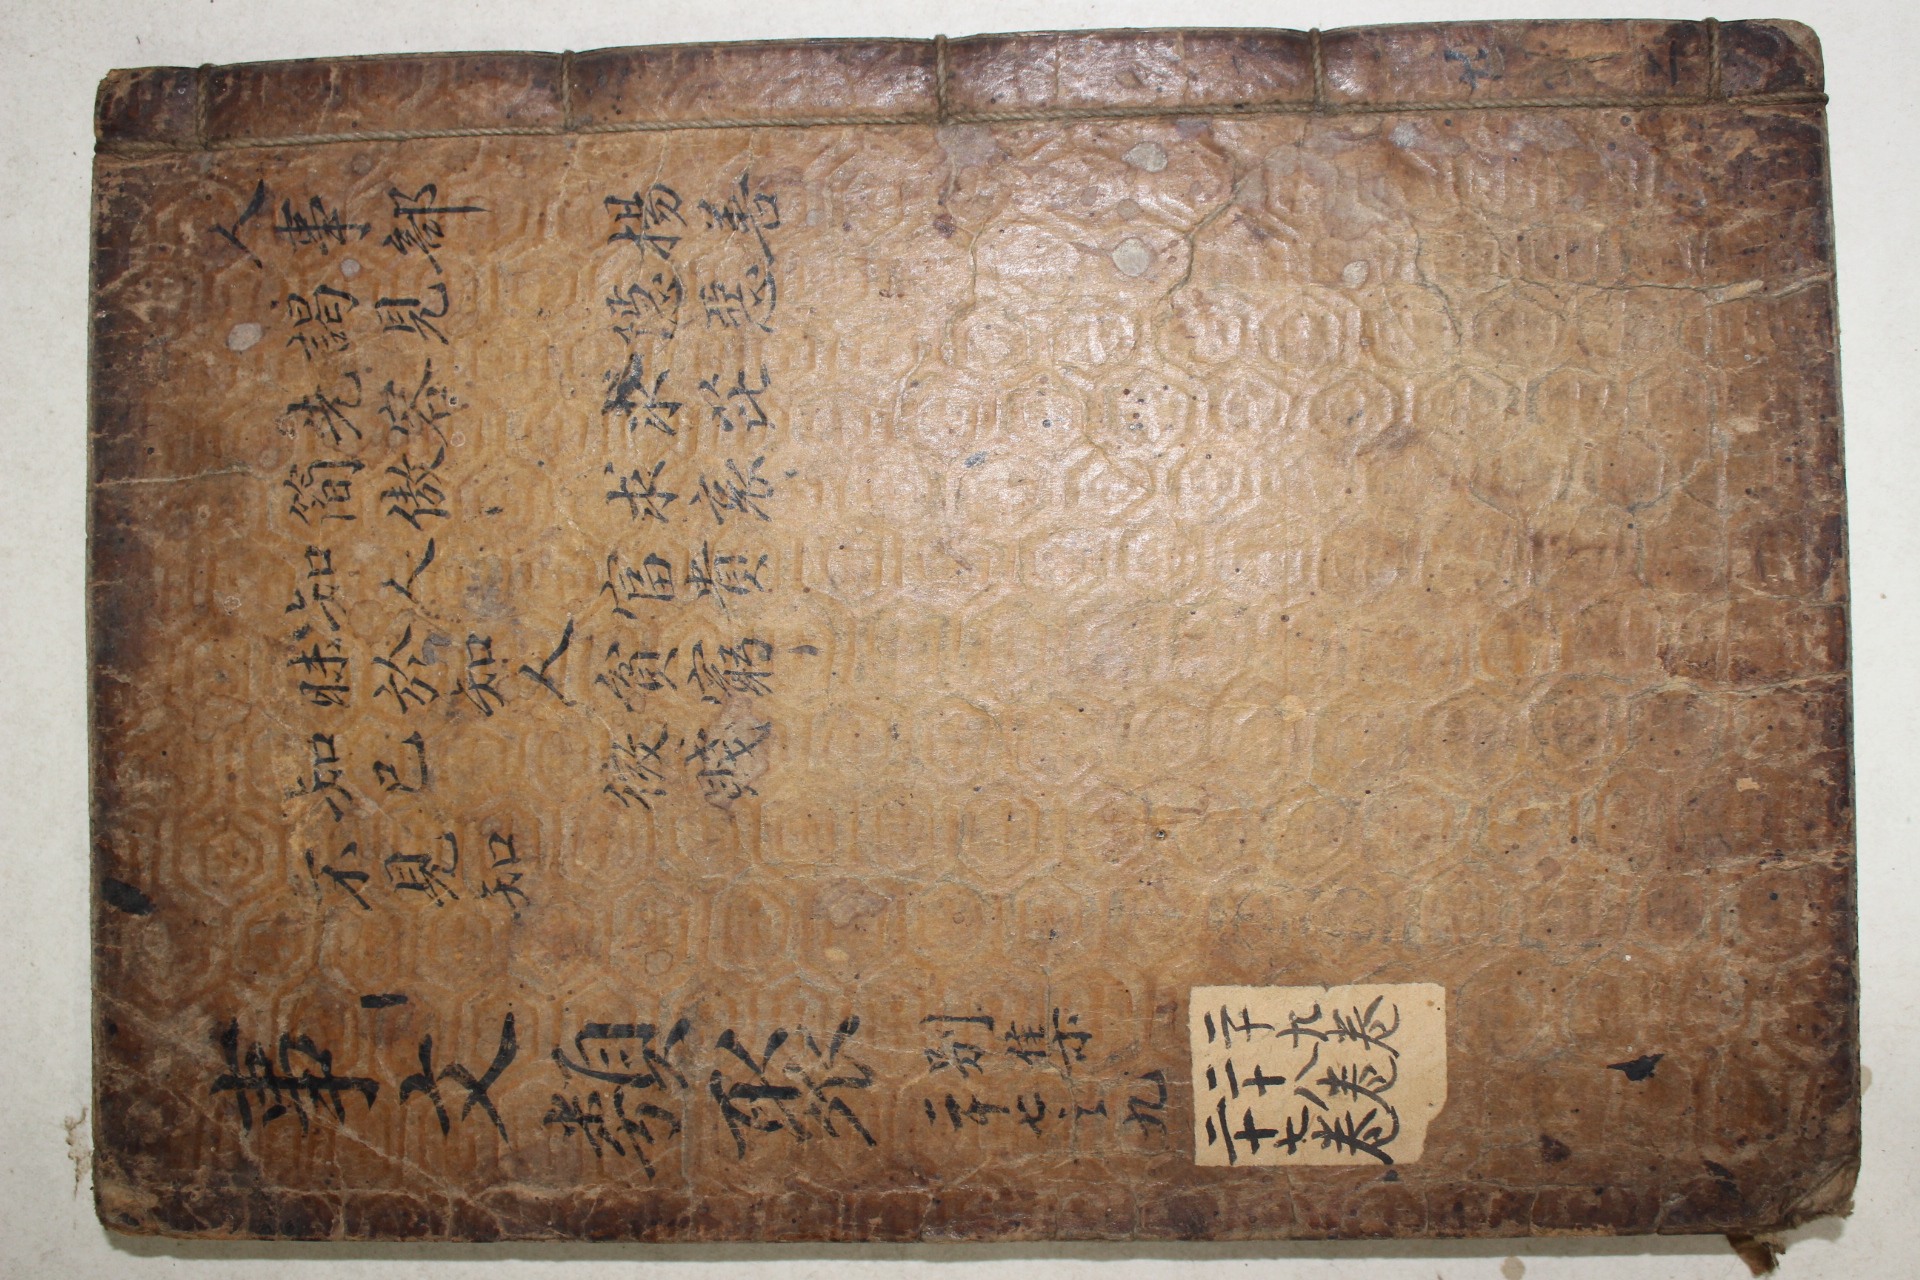 人事部 揚善
謁見 隱惡
先容 求茈
簡傲 求哀
知人 富貴
昧於知人 貧窮
知己 微賤
不見知
事文類聚
別集
二十七之九
二十九卷
二十八卷
二十七卷